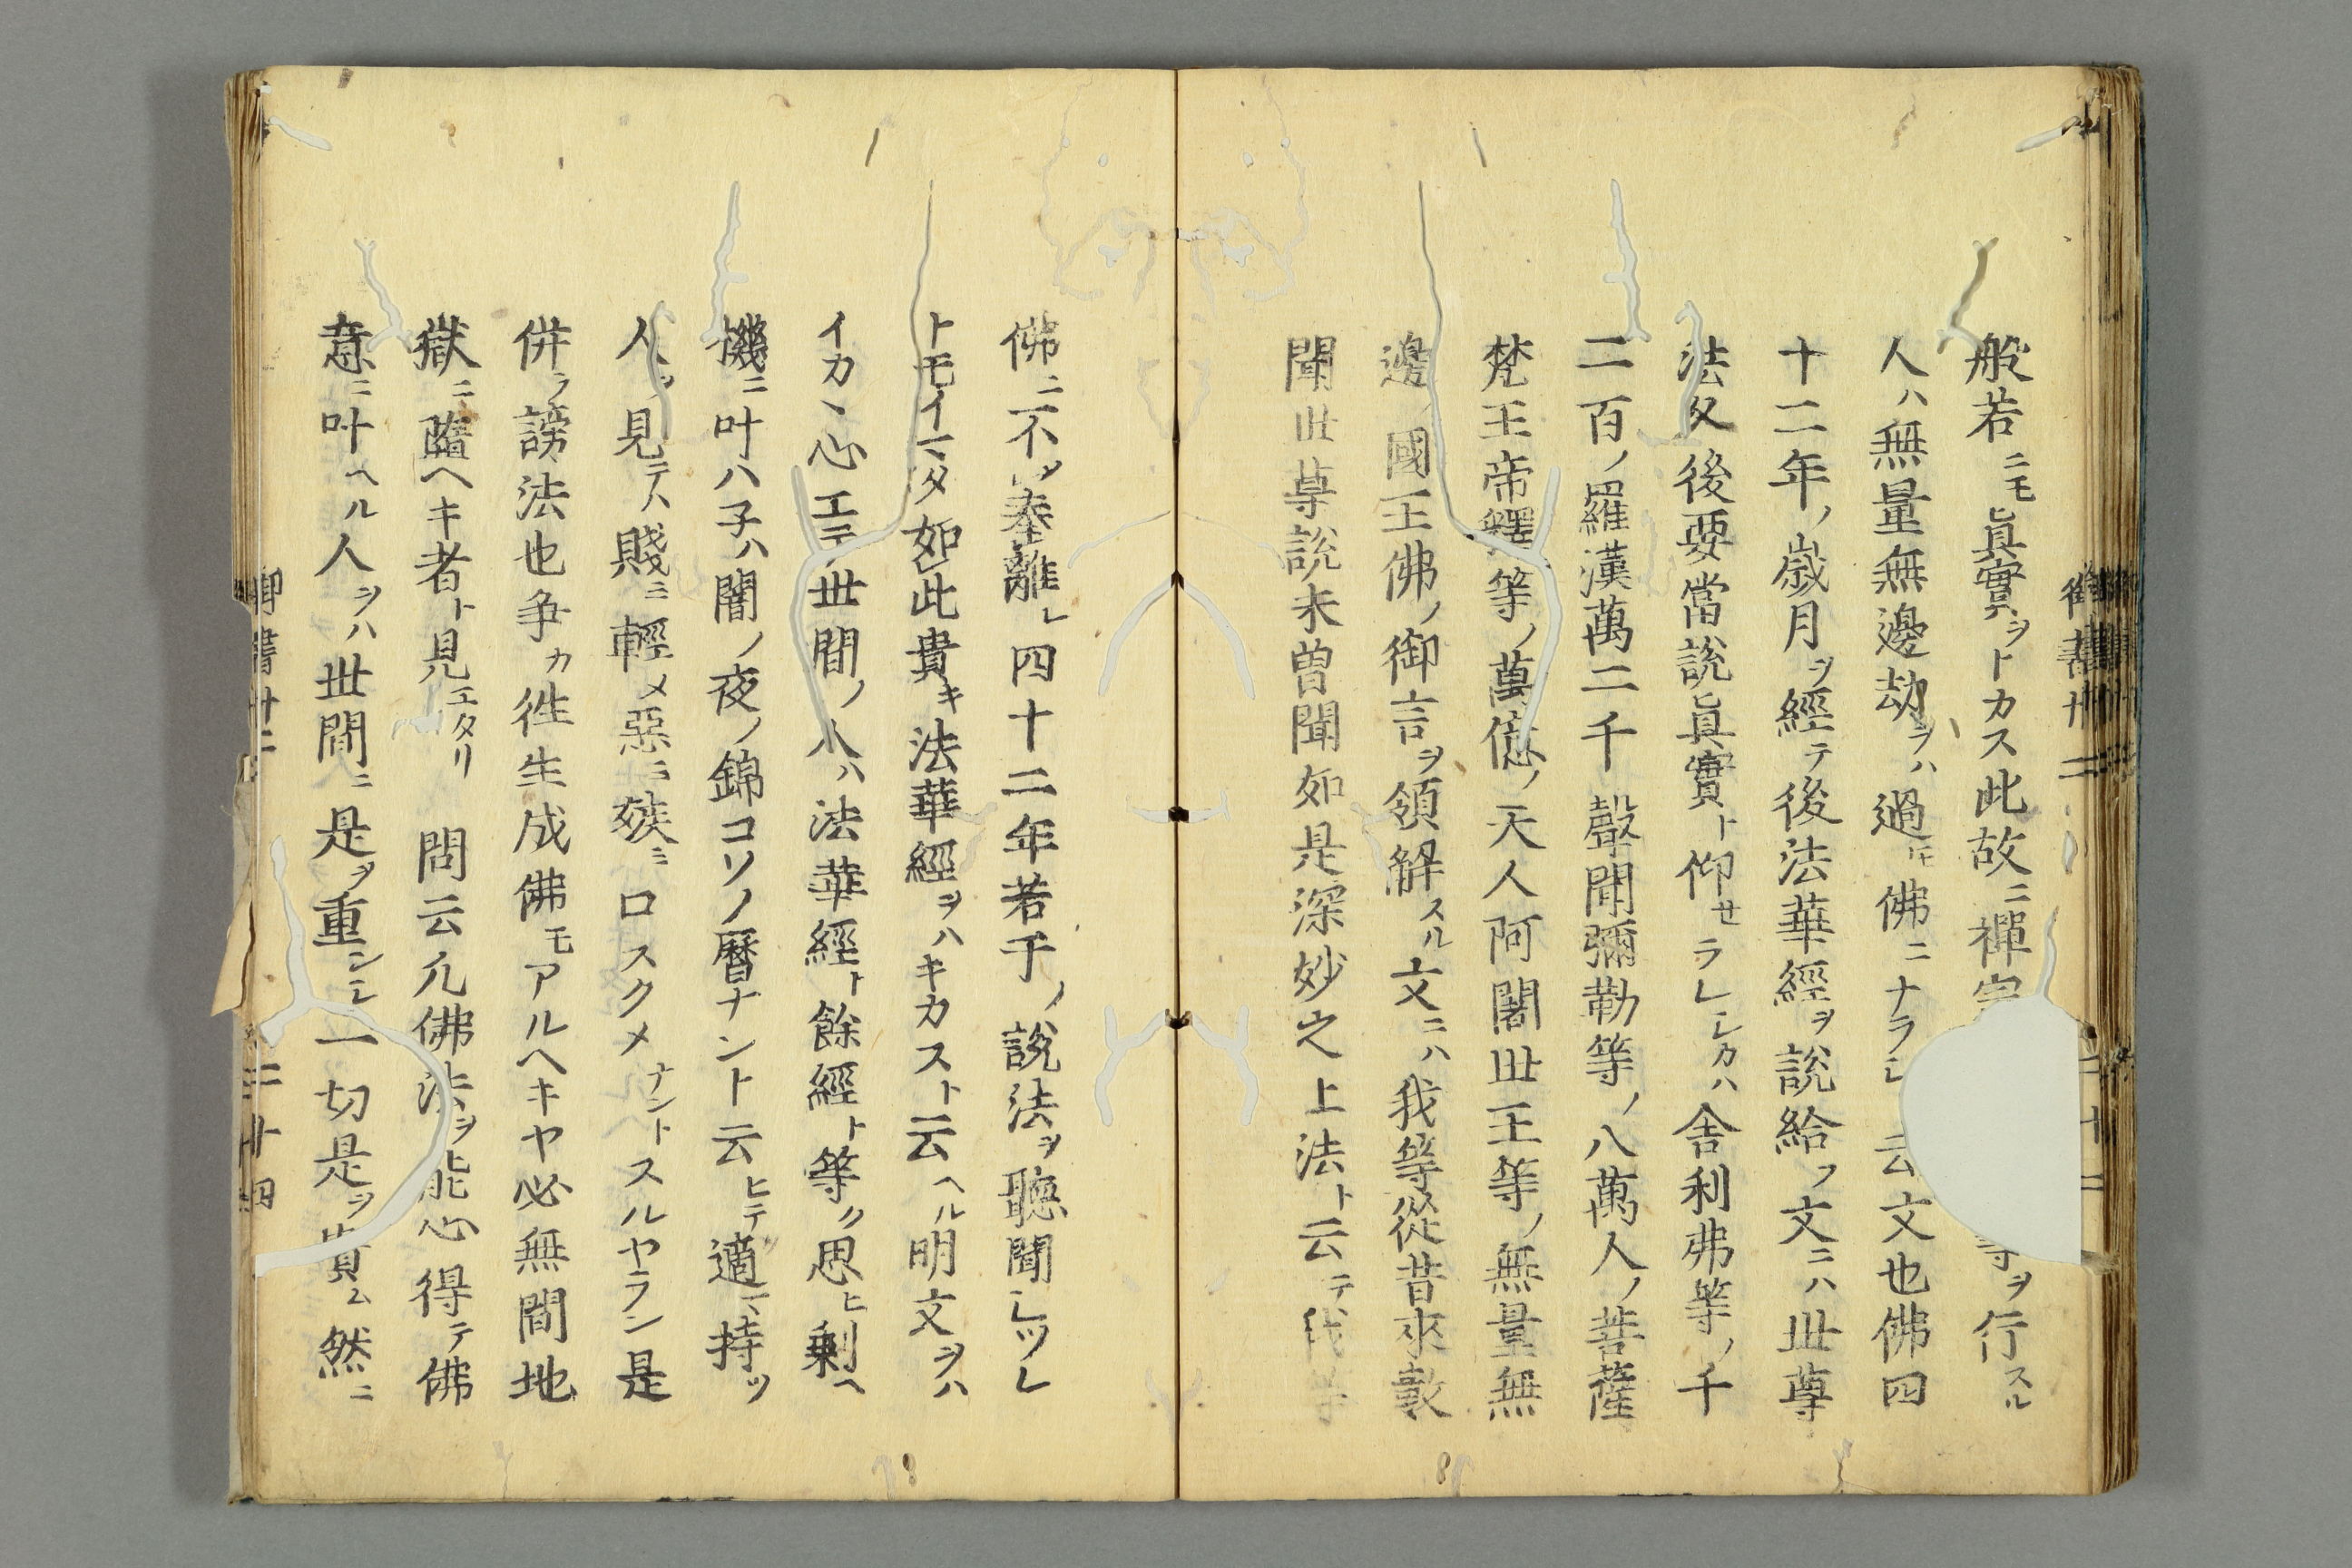 般若ニモ眞實ヲトカス此故ニ禪宗等ヲ行スル
人ハ無量無邊劫ヲハ過トモ佛ニナラシ云文也佛四
十二年ノ歳月ヲ經テ後法華經ヲ説給フ文ニハ世尊
法久後要當説眞實ト仰セラレシカハ舎利弗等ノ千
二百ノ羅漢萬二千聲聞彌勒等ノ八萬人ノ菩薩
梵王帝釋等ノ萬億ノ天人阿闍世王等ノ無量無
邊國王佛ノ御言ヲ領解スル文ニハ我等從昔來數
聞世尊説未曽聞如是深妙之上法ト云テ我等
佛ニ不奉離レ四十二年若干ノ説法ヲ聴聞シツレ
トモイマタ如此貴キ法華經ヲハキカスト云ヘル明文ヲハ
イカヽ心エテ世間ノ人ハ法華經ト餘經ト等ク思ヒ剰ヘ
機ニ叶ハ子ハ闇ノ夜ノ錦コソノ暦ナント云ヒテ適マ持ツ
人ヲ見テハ賤ミ輕メ惡ミ嫉ミ口スクメナントスルヤラン是
併ラ謗法也争カ徃生成佛モアルヘキヤ必無間地
獄ニ墮ヘキ者ト見エタリ　問云凡佛法ヲ能心得テ佛
意ニ叶ヘル人ヲハ世間ニ是ヲ重シシ一切是ヲ貴ム然ニ
御書廿二
二十四